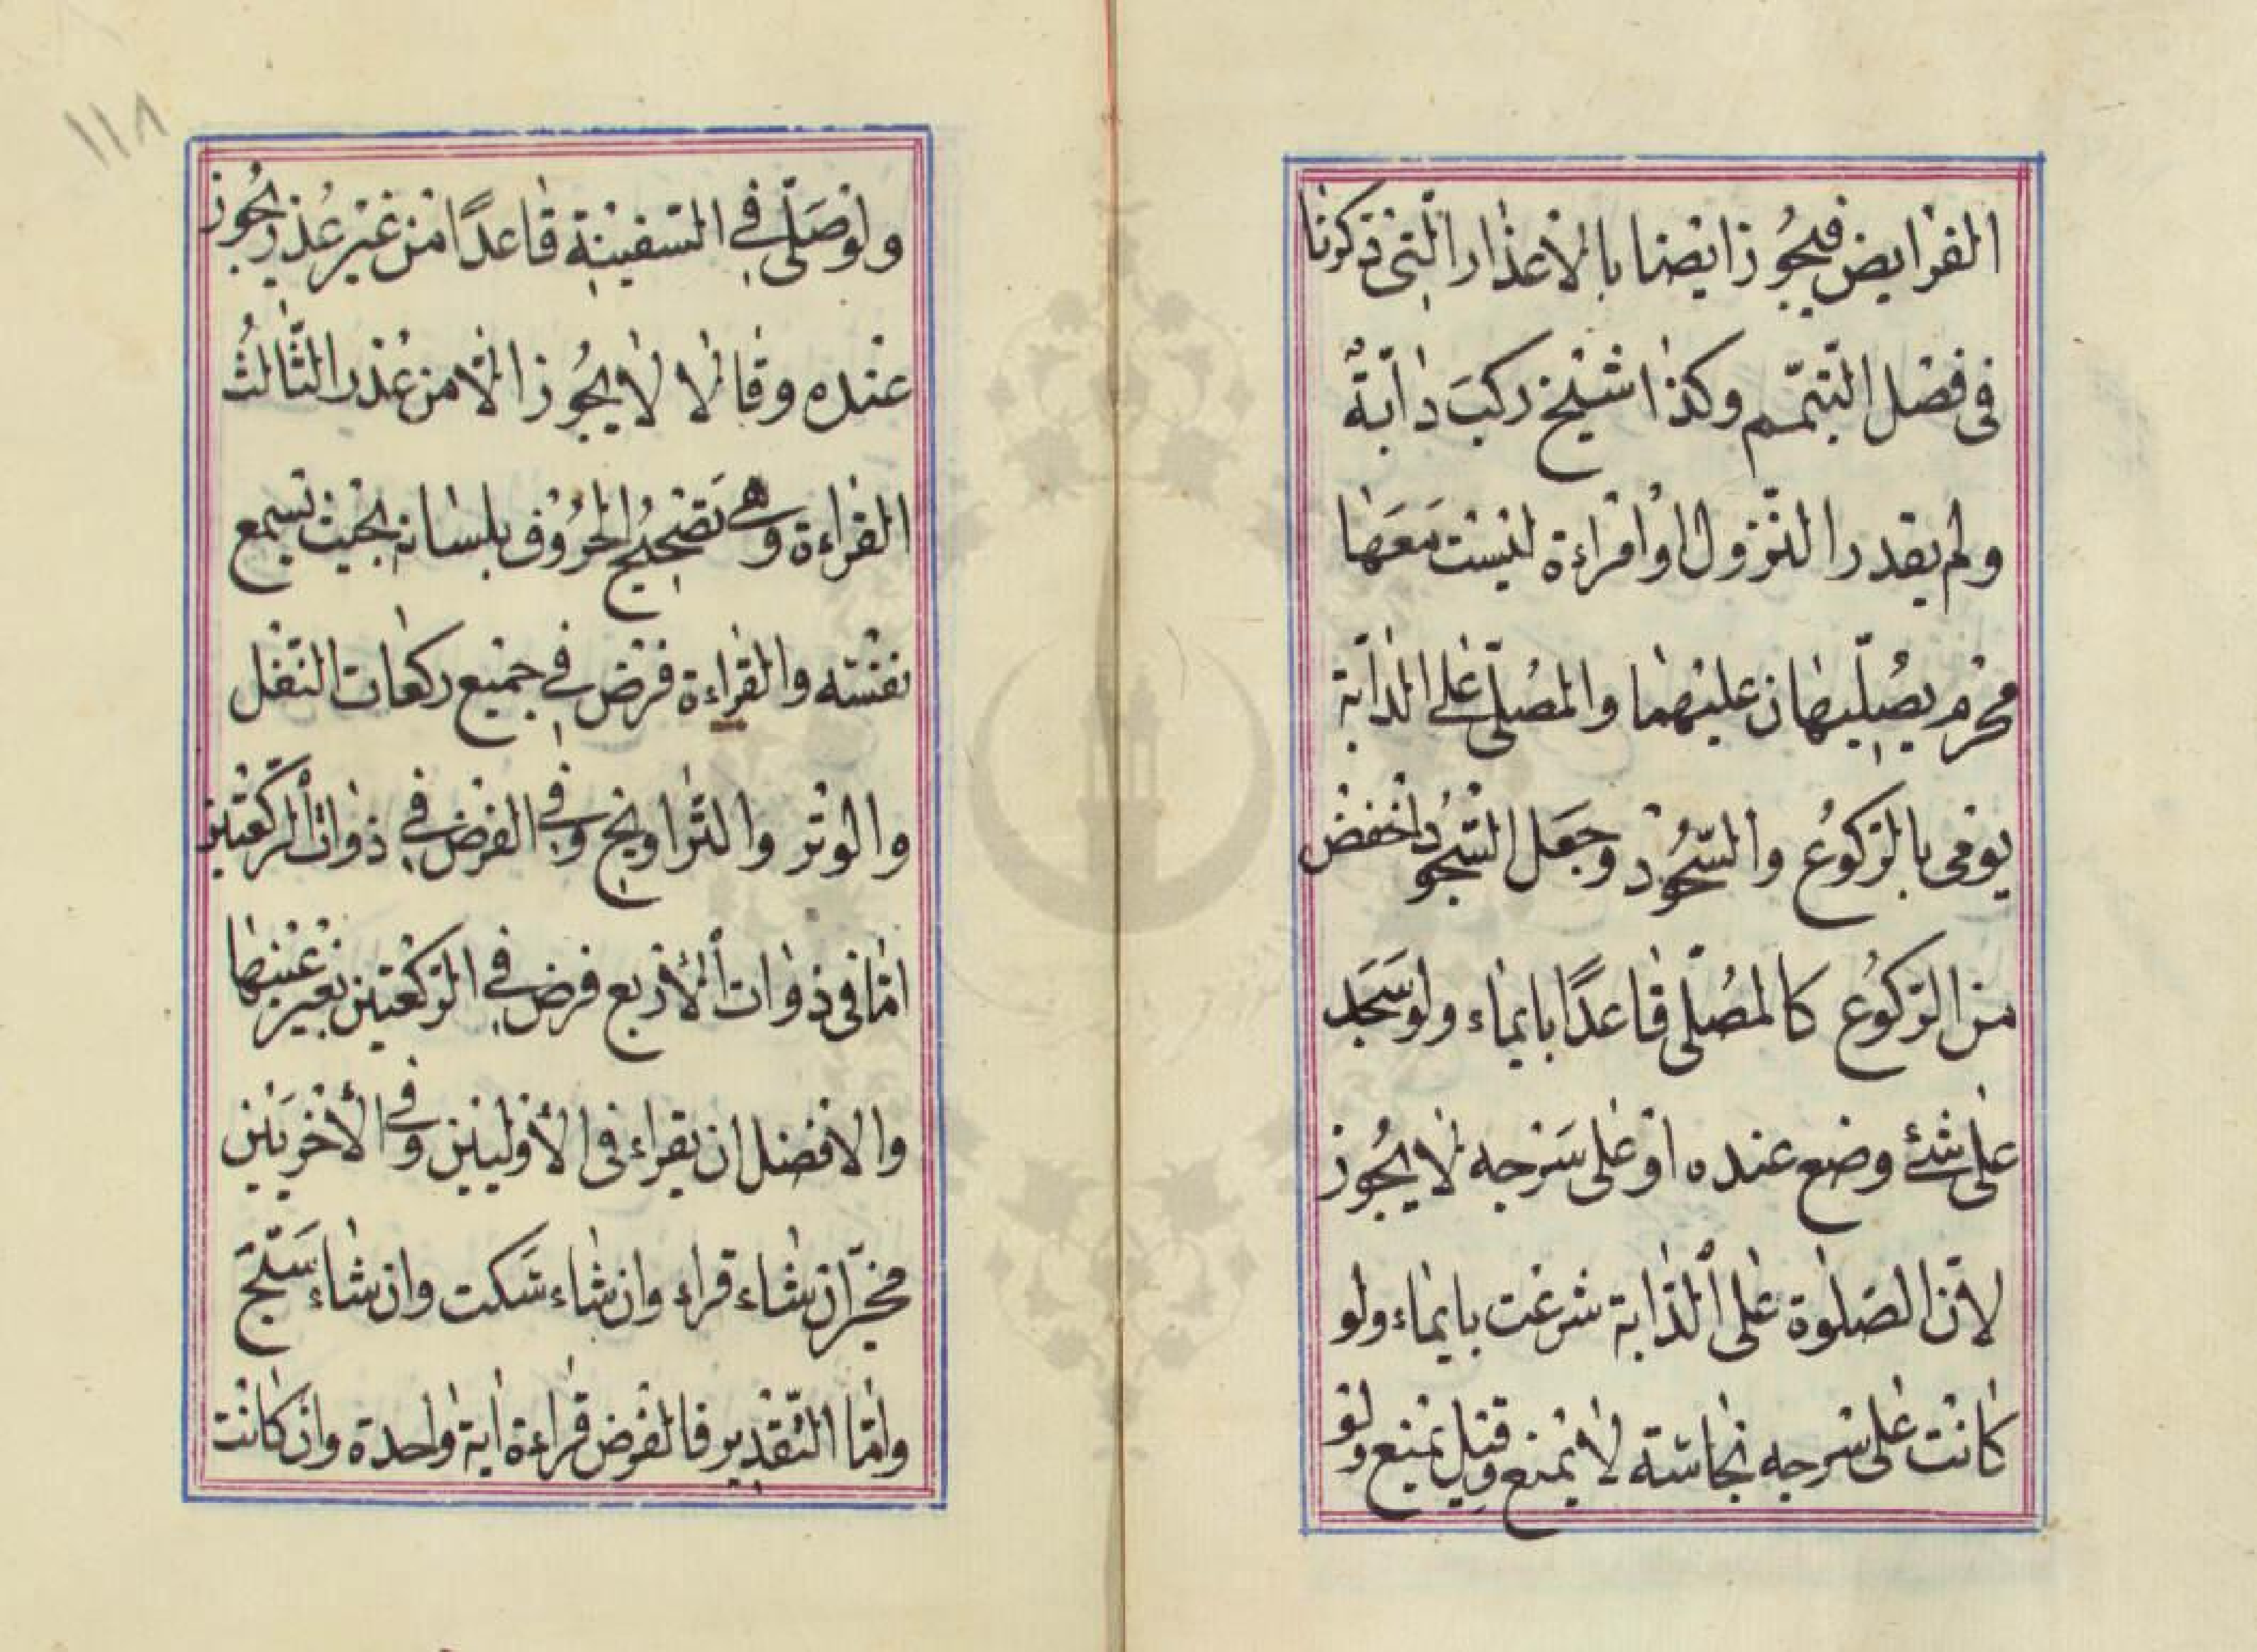 الفرايض فيجوز ايضا بالاعذار التى ذكرنا
فى فصل التيمّم وكذا شيخ ركبَ دابّةً
ولم يقدر النزول اوامراءة ليست مَعَها
محرم يصُلّيهان عليهما والمصُلّى على الدّابّة
يومى بالرّكوُع والسّجُود وجعَل السّجُود اخفض
من الرّكوُع كالمصُلّى قاعدًا بايماء ولو سَجَد
على شئ وضع عنده او على سَرجه لا يجُوز
لانّ الصّلوة على الدّابة شرعت بايماء ولو
كانت على سرجه نجاسة لا يمنع وقيل يمنع ولو
١١٨
ولو صَلّى في السّفينة قاعدًا من غير عُذر يجُوز
عنده وقالا لا يجُوز الّا من عُذر الثّالثُ
القراءة وهي تَصحيحُ الحرُوف بلسانه بحيث تسمع
نفسه والقراءة فرض في جميع ركعات النّفل
والوتر والتّراويح وفي الفرض في ذوات الرّكعتين
امّا فى ذوات الأربع فرض في الرّكعتين بغير عينها
والافضل ان يقراء فى الأوليين وفى الأخريَين
مخيّر ان شاء قراء وان شاء سَكت وان شاء سَبّح
وامّا التّقدير فالفرض قراءة اية واحدة وان كانت